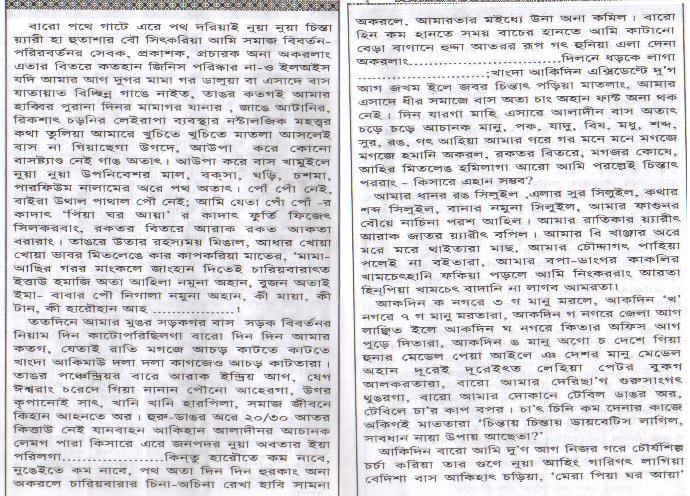 বারো পথে গাটে এরে পথ দরিয়াই নুয়া নুয়া চিন্তা
য়্যারী হা হুতাশার বৌ সিৎকরিয়া আমি সমাজ বিবর্তন-
পরিবর্তনর সেবক, প্রকাশক, প্রচারক অনা অকরলাং
এতার বিতরে কতহান জিনিস পরিষ্কার না-ও ইলঅইস
যদি আমার আগ দুগর মামা গর ডালুয়া বা এসাদে বাস
যাতায়াত বিচ্ছিন্ন গাঙে নাইত, তাঙর কতগই আমার
হাব্বির পুরানা দিনর মামাগর যানার , জাঙে আটানির,
রিকশাৎ চড়নির লেইরাপা ব্যবস্থার নস্টালজিক মহত্বর
কথা তুলিয়া আমারে খুচিতে খুচিতে মাতলা আসলেই
বাস না গিয়াছেগা উগদে, আউপা করে কোনো
বাসষ্ট্যাণ্ড নেই গাঙ অতাৎ। আউপা করে বাস খামুইলে
নুয়া নুয়া উপনিবেশর মাল, বক্সা, ঘড়ি, চশমা,
পারফিউম নালামের অরে পথ অতাৎ। পোঁ পোঁ নেই,
বাইরা উথাল পাথাল পৌঁ নেই; আমি যেতা পোঁ পোঁ -র
কাদাৎ 'পিয়া ঘর আয়া' র কাদাৎ ফুর্তি ফিজেৎ
সিলকরবাং, রকতর বিতরে আরাক রকত আকতা
বরারাং। তাঙরে উতার রহস্যময় মিঙাল, আধার খোয়া
খোয়া ভাবর মিতলেঙে কার কাপকরিয়া মাতের, 'মামা-
আছির গরর মাংকলে জাংহান দিতেই চারিয়বারাৎত
ইত্তাউ হমাজি অতা আহিলা নমুনা অহান, বুজন অতাই
ইমা- বাবার পৌ নিগালা নমুনা অহান, কী মায়া, কী
টান, কী হারৌহান আহ ..................!
ততদিনে আমার মুঙর সড়কগর বাস সড়ক বিবর্তনর
নিয়াম দিন কাটোপরিছিলগা বারো দিন দিন আমার
কতগ, যেতাই রাতি মগজে আচড় কাটতে কাটতে
খাংদা আকিমাউ দলা দলা কাগজেও আচড় কাটতারা।
তাঙর পঞ্চেন্দ্রিয়র বারে আরাক ইন্দ্রিয় আগ, যেগ
ঈশ্বরাং চরেদে গিয়া নানান পৌনো আহেরগা, উগর
কৃপানোই সাৎ, খানি খানি হারপিলা, সমাজ জীবনে
কিহান আহনতে অর। হুরু-ডাঙর অরে ২০/৩০ আতর
কিত্তাউ নেই যানবাহন আকিহান আলাদীনর আচানক
লেমগ পারা কিসারে এরে জনপদর নুয়া অবতার ইয়া
পরিলগা...............কিন্তু হারৌতে কম নাবে,
নুঙেইতে কম নাবে, পথ অতা দিন দিন হুরকাং অনা
অকরলে চারিয়বারার চিনা-অচিনা রেখা হাবি সামনা
অকরলে, আমারতার মইধ্যে উনা অনা কমিল। বারো
হিন কম হানতে সময় বাচের হানতে আমি কাটানো
বেড়া বাগানে হুদ্দা আতরর রূপ গৎ হুনিয়া এলা দেনা
অকরলাং...............................দিলনে ধড়কে লাগা
......................;খাংদা আকিদিন এক্সিডেন্টে দু'গ
আগ জখম ইলে জবর চিন্তাৎ পড়িয়া মাতলাং, আমার
এসাদে ধীর সমাজে বাস অতা চাং অহান ফাস্ট অনা থক
নেই। দিন যারগা মাহি এসারে আলাদীন বাস অতাৎ
চড়ে চড়ে আচানক মানু, পক, যাদু, বিষ, মধু, শব্দ,
সুর, রঙ, গৎ আহিয়া আমার গরে গর মনে মনে মগজে
মগজে হমানি অকরল, রকতর বিতরে, মগজর কোষে,
আহির মিতলেঙ হমিলাগা আরো আমি পরল্পেই চিন্তাৎ
পররাং - কিসারে এহান সম্ভব?
আমার ধানর রঙ সিলুইল ,এলার সুর সিলুইল, কথার
শব্দ সিলুইল, বানার নমুনা সিলুইল, আমার ফাগুনর
বৌয়ে নাচিনা পরশ আহিল। আমার রাতিকার য়্যারীৎ
আরাক জাতর য়্যারীৎ বপিল। আমার বি খাঞ্জার অরে
মরে মরে থাইতারা মাছ, আমার চৌদ্দাগৎ পাহিয়া
পলেই না বইতারা, আমার বপা-ডাংগর কাকলির
খামচেৎহানি ফকিয়া পড়লে আমি নিংকররাং আরতা
হিন্‌পিয়া খামচেৎ বাদানি না লাগব আমরতা।
আকদিন ক নগরে ৩ গ মানু মরলে, আকদিন 'খ'
নগরে ৭ গ মানু মরতারা, আকদিন গ নগরে জেলা আগ
লাঞ্ছিত ইলে আকদিন ঘ নগরে কিতার অফিস আগ
পুড়ে দিতারা, আকদিন ঙ মানু অগো চ দেশে গিয়া
হুনার মেডেল পেয়া আইলে এঁ দেশর মানু মেডেল
অহান দূরেই দূরেইৎত লেহিয়া পেটর বুকগ
আলকরতারা, বারো আমার দেরিছা'গ গুরুসাংগৎ
থুঙরগা, বারো আমার দোকানে টেবিল ডাঙর অর,
টেবিলে চা'র কাপ বপর। চা'ৎ চিনি কম দেনার কাজে
অকিগই মাততারা 'চিন্তায় চিন্তায় ডায়বেটিস লাগিল,
সাবধান নায়া উপায় আছেতা?'
আকিদিন বারো আমি দু'গ আগ নিজর গরে চৌর্যশিল্প
চর্চা করিয়া তার গুণে নুয়া আহিং গারিগৎ লাগিয়া
বেদিশা বাস আকিহাৎ চড়িয়া, 'মেরা পিয়া ঘর আয়া'